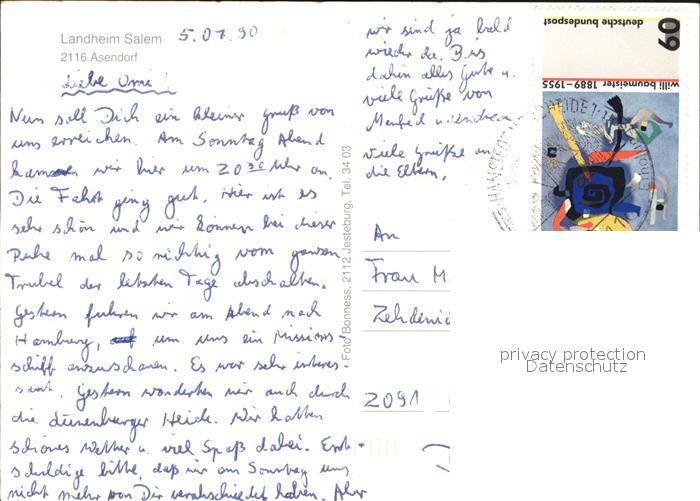 Landheim Salem
2116 Asendorf
5.07.90
Liebe Omi!
Nun soll Dich ein kleiner Gruß von
uns erreichen. Am Sonntag Abend
kamen wir hier um 20 30 Uhr an.
Die Fahrt ging gut. Hier ist es
sehr schön und wir können bei dieser
Ruhe mal so richtig vom ganzen
Trubel der letzten Tage abschalten.
Gestern fuhren wir am Abend nach
Hamburg, um uns ein Missions-
schiff anzuschauen. Es war sehr interes-
sant. Gestern wanderten wir auch durch
die Lüneburger Heide. Wir hatten
schönes Wetter u. viel Spaß dabei. Ent-
schuldige bitte, daß wir am Sonntag uns
nicht mehr von Dir verabschiedet haben. Aber
wir sind ja bald
wieder da. Bis
dahin alles Gute u.
viele Grüße von
Manfred u. Andrea
viele Grüße an
die Eltern.
Foto Bonness, 2112 Jesteburg, Tel. 34 03
An
Frau M
Zehdenic
2091
60
deutsche bundespost
willi baumeister 1889-1955
privacy protection
Datenschutz